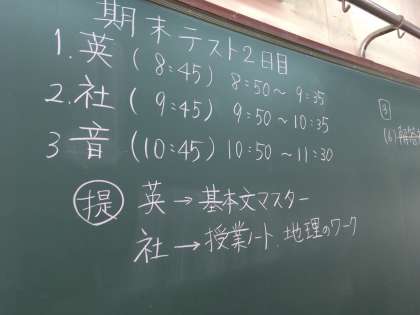 期末テスト2日目
1.英 (8:45) 8:50～9:35
2.社 (9:45) 9:50～10:35
3 音 (10:45) 10:50～11:30
提 英→基本文マスター
社→授業ノート、地理のワーク
③
(6)